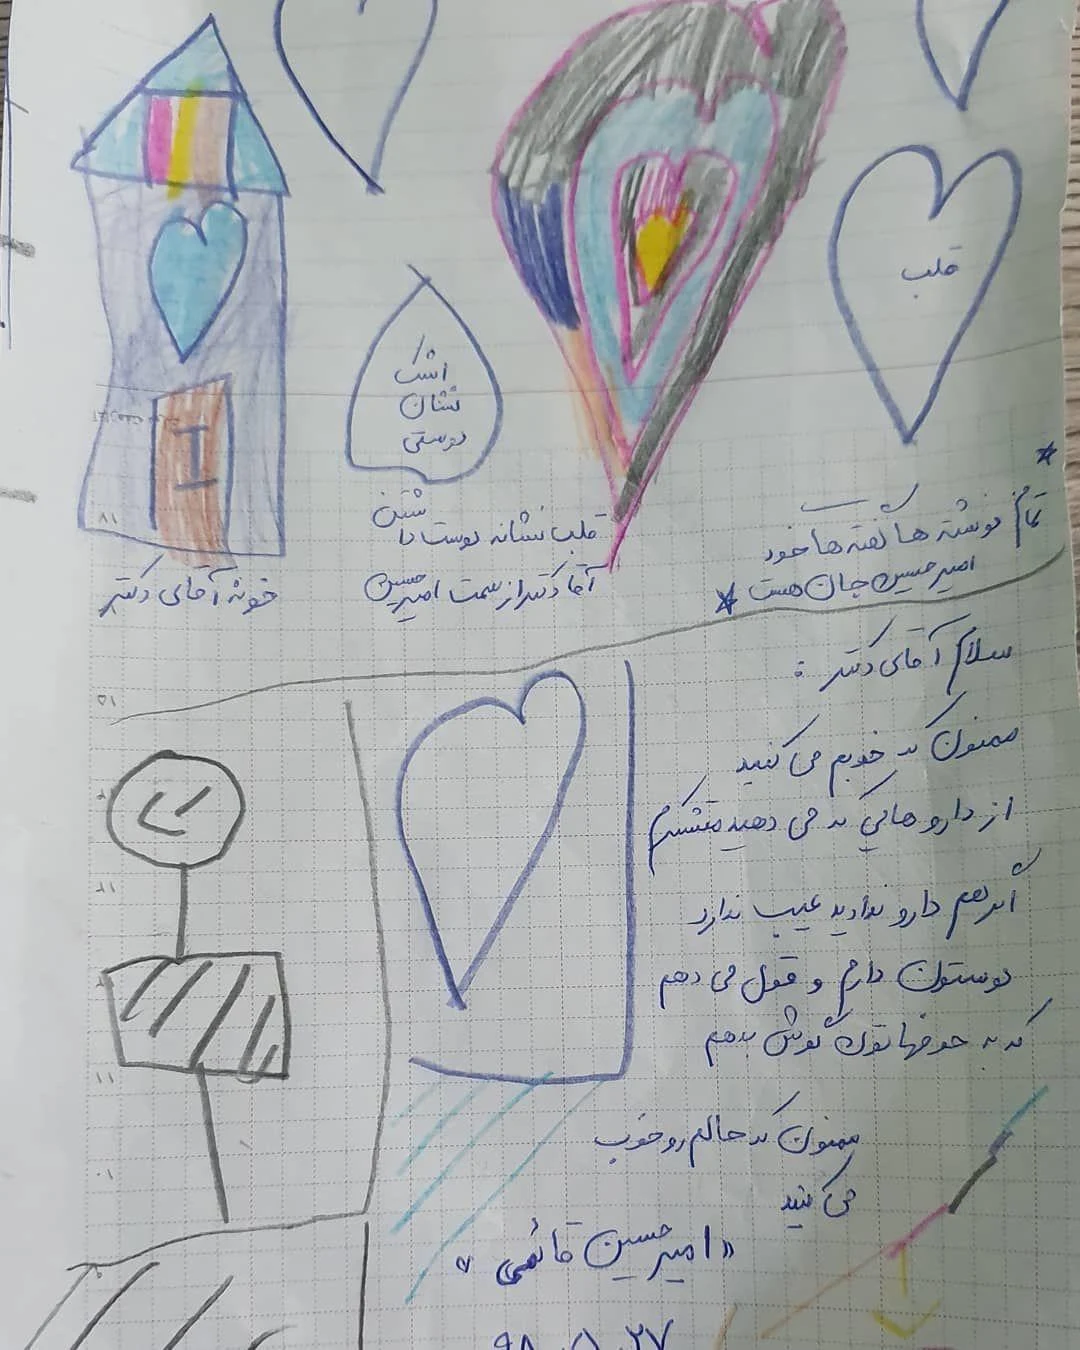 قلب
اشک
نشان
دوستی
خونه آقای دکتر
شتن
قلب نشانه دوست دا
آقا دکتر از سمت امیرحسین
تمام نوشته ها گفته ها خود
امیرحسین جان هست
سلام آقای دکتر :
ممنون که خوبم می کنید
از دارو هایی که می دهید متشکرم
اگر هم دارو ندادید عیب ندارد
دوستون دارم و قول می دهم
که به حرفهاتون گوش بدهم
ممنون که حالم رو خوب
می کنید
«امیرحسین قائمی»